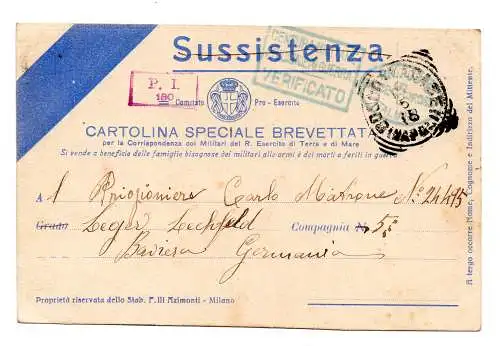 Sussistenza
P. I.
180
VERIFICATO
Comitato Pro - Esercito
CARTOLINA SPECIALE BREVETTATA
per la Corrispondenza dei Militari del R. Esercito di Terra e di Mare
Si vende a beneficio delle famiglie bisognose dei militari alle armi e dei morti e feriti in guerra
A l Prigioniere Carlo Matrone N.° 24415
Grado Leger Lechfeld Compagnia N. 5ª
Baviera Germania
Proprietà riservata dello Stab. F.lli Azimonti - Milano
A tergo occorre Nome, Cognome e Indirizzo del Mittente.